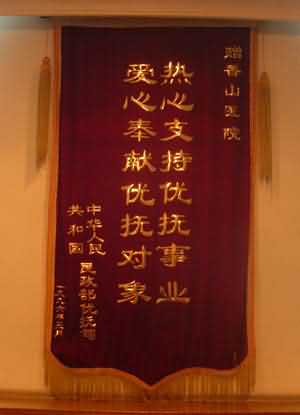 赠香山医院
热心支持优抚事业
爱心奉献优抚对象
中华人民
共和国
民政部优抚司
一九九六年三月